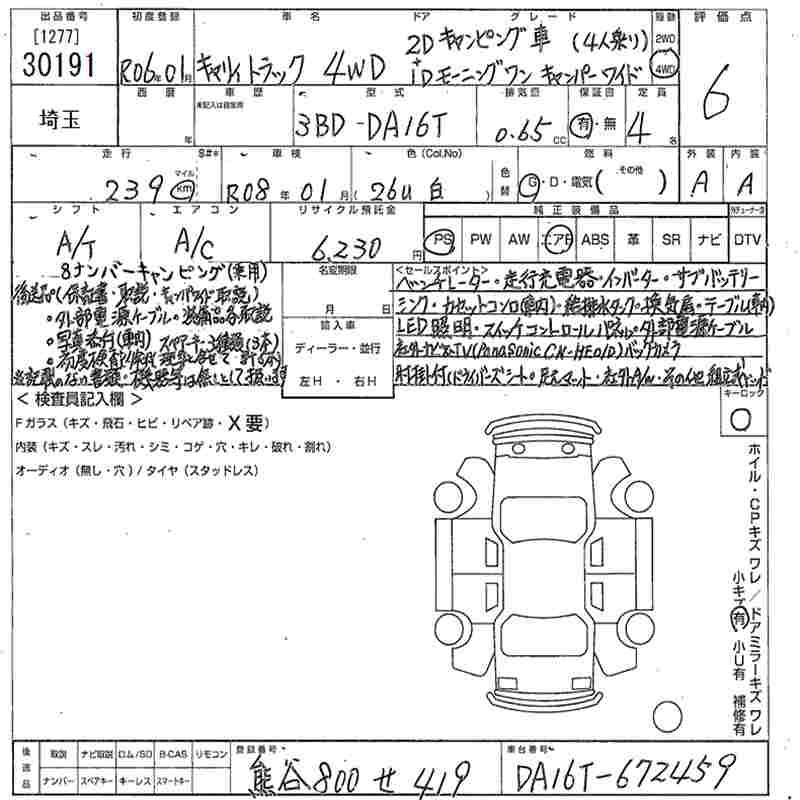 出品番号 初度登録 車名 ドア グレード 駆動 評価点
[1277]
30191
R06年01月
キャリイトラック 4WD
2D キャンピング車 (4人乗り)
iDモーニングワン キャンパーワイド
2WD
4WD
6
埼玉
西暦 車歴 型式 排気量 保証書 定員
未記入は自家用
年
3BD-DA16T
0.65 CC
有・無
4名
走行 S#* 車検 色(Col,No) 燃料 外装 内装
239 マイル km
R08年01月
26U 白
色替
G・D・電気( その他 )
A A
シフト エアコン リサイクル預託金 純正装備品
A/T
A/C
6,230円
PS PW AW エアB ABS 革 SR ナビ DTV
8ナンバーキャンピング(乗用)
後送品(保証書・取説・キャンパーワイド取説)
・外部電源ケーブル・装備品各取説
・写真添付(車内) スペアキー3種類(3本)
名変期限
月 日
輸入車
ディーラー・並行
左H・右H
<セールスポイント>
ベンチレーター・走行充電器・インバーター・サブバッテリー
シンク・カセットコンロ(車内)・給排水タンク・換気扇・テーブル(車内)
LED照明・スイッチコントロールパネル・外部電源ケーブル
社外ナビ&TV(Panasonic CN-HE01D)バックカメラ
キーロック
○
< 検査員記入欄 >
Fガラス(キズ・飛石・ヒビ・リペア跡・X要)
内装(キズ・スレ・汚れ・シミ・コゲ・穴・キレ・破れ・割れ)
オーディオ(無し・穴)/タイヤ(スタッドレス)
ホイル・CPキズ ワレ/ドアミラーキズ ワレ
小キズ有 小U有 補修有
後送品
取説 ナビ取説 ロム/SD B-CAS リモコン
ナンバー スペアキー キーレス スマートキー
登録番号
熊谷 800 せ 419
車台番号
DA16T-672459